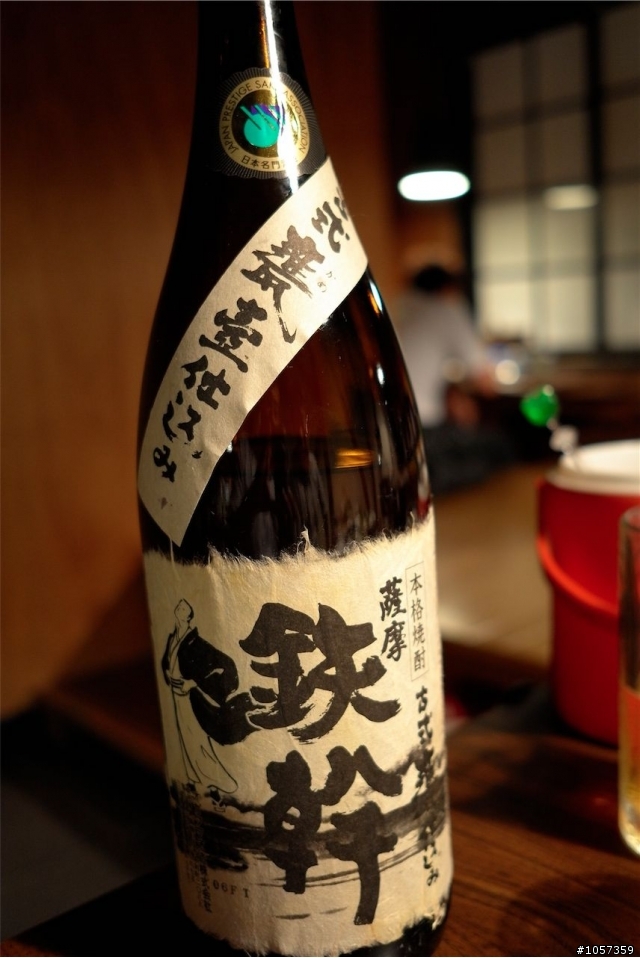 JAPAN PRESTIGE SAKE ASSOCIATION
日本名門
古式甕壺仕込み
かめ
本格焼酎
薩摩
鉄幹
古式甕壺仕込み
06F1
#1057359